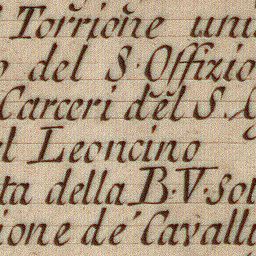 Torrione uni
o del S. Offizio
Carceri del S.
el Leoncino
ta della B. V. sot
ione de' Cavall